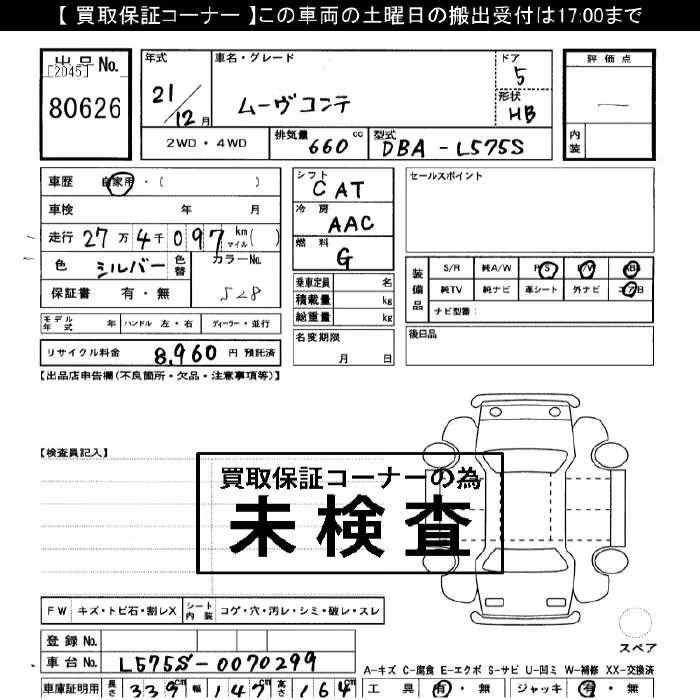 【 買取保証コーナー 】この車両の土曜日の搬出受付は17:00まで
出品 No.
[2045]
80626
年式
21/12月
車名・グレード
ムーヴコンテ
ドア
5
形状
HB
2WD・4WD
排気量 660 cc
型式 DBA-L575S
評価点
—
内装
車歴 自家用・( )
車検 年 月
走行 27万4千097 km マイル( )
色 シルバー 色替
カラーNo. S28
保証書 有・無
モデル年式 年 ハンドル 左・右 ディーラー・並行
リサイクル料金 8,960 円 預託済
シフト
CAT
冷房
AAC
燃料
G
乗車定員 名
積載量 kg
総重量 kg
名変期限
月 日
セールスポイント
装備品
S/R 純A/W P/S P/W ABS
純TV 純ナビ 革シート 外ナビ エアB
ナビ型番:
後日品
【出品店申告欄(不良箇所・欠品・注意事項等)】
【検査員記入】
買取保証コーナーの為
未検査
FW キズ・トビ石・割レX シート内装 コゲ・穴・汚レ・シミ・破レ・スレ
スペア
登録 No.
車台 No. L575S-0070299
A-キズ C-腐食 E-エクボ S-サビ U-凹ミ W-補修 XX-交換済
車庫証明用 長さ 339cm 幅 147cm 高さ 164cm
工具 有・無 ジャッキ 有・無